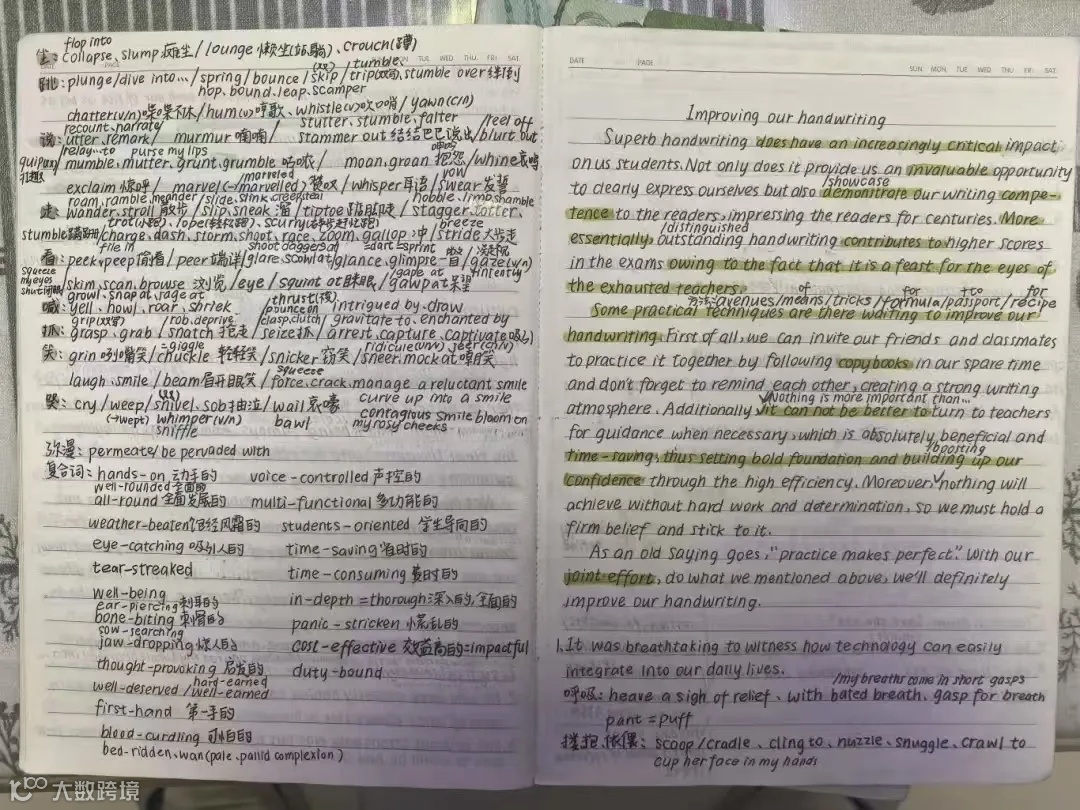 flop into
坐: collapse、slump 瘫坐/lounge 懒坐(站、躺)、crouch(蹲)
tumble
跳: plunge/dive into…/spring/bounce/skip/trip、stumble over 绊倒
hop、bound、leap、scamper
chatter(v/n)喋喋不休/hum(v)哼歌、whistle(v)吹口哨/yawn(v/n)
recount、narrate stutter、stumble、falter
说: utter、remark/murmur 喃喃/stammer out 结结巴巴说出/blurt out
purse my lips
mumble、mutter、grunt、grumble 咕哝/moan、groan 抱怨/whine 哀鸣
marveled vow
exclaim 惊呼/marvel(→marvelled)赞叹/whisper 耳语/swear 发誓
roam、ramble、meander/slide、slink、creep、steal hobble、limp、shamble
走: wander、stroll 散步/slip、sneak 溜/tiptoe 踮脚走/stagger、totter、
breeze
charge、dash、storm、shoot、race、zoom、gallop 冲/stride 大步走
file in shoot daggers at =dart=sprint
看: peek、peep 偷看/peer 端详/glare、scowl at/glance、glimpse 一瞥/gaze(v/n)
squeeze my eyes shut gape at intently
skim、scan、browse 浏览/eye/squint at 眯眼/gawp at 呆望
growl、snap at、rage at
喊: yell、howl、roar、shriek intrigued by、draw
thrust
pounce on
grip rob、deprive clasp、clutch gravitate to、enchanted by
抓: grasp、grab/snatch 抢走/seize 抓/arrest、capture、captivate 吸引
giggle ridicule(n/v)、jeer(v/n)
笑: grin 咧嘴笑/chuckle 轻轻笑/snicker 窃笑/sneer、mock at 嘲笑
squeeze
laugh、smile/beam 眉开眼笑/force、crack、manage a reluctant smile
哭: cry/weep/snivel、sob 抽泣/wail 哀嚎 curve up into a smile
(→wept) whimper(v/n) bawl contagious smile bloom on
sniffle my rosy cheeks
弥漫: permeate/be pervaded with
复合词: hands-on 动手的 voice-controlled 声控的
well-rounded 全面的
all-round 全面发展的 multi-functional 多功能的
weather-beaten 饱经风霜的 students-oriented 学生导向的
eye-catching 吸引人的 time-saving 省时的
tear-streaked time-consuming 费时的
well-being in-depth=thorough 深入的,全面的
ear-piercing 刺耳的
bone-biting 刺骨的 panic-stricken 慌乱的
sow-searching
jaw-dropping 惊人的 cost-effective 效益高的=impactful
thought-provoking 启发的 duty-bound
hard-earned
well-deserved/well-earned
first-hand 第一手的
blood-curdling 可怕的
bed-ridden、wan(pale、pallid complexion)
DATE PAGE
SUN MON TUE WED THU FRI SAT
Improving our handwriting
Superb handwriting does have an increasingly critical impact
on us students. Not only does it provide us an invaluable opportunity
/showcase
to clearly express ourselves but also demonstrate our writing compe-
tence to the readers, impressing the readers for centuries. More
/distinguished
essentially, outstanding handwriting contributes to higher scores
in the exams owing to the fact that it is a feast for the eyes of
the exhausted teachers.
方法: avenues/means/tricks/formula/passport/recipe
of for to for
Some practical techniques are there waiting to improve our
handwriting. First of all, we can invite our friends and classmates
to practice it together by following copybooks in our spare time
and don't forget to remind each other, creating a strong writing
Nothing is more important than…
atmosphere. Additionally, it can not be better to turn to teachers
for guidance when necessary, which is absolutely beneficial and
/boosting
time-saving, thus setting bold foundation and building up our
confidence through the high efficiency. Moreover, nothing will
achieve without hard work and determination, so we must hold a
firm belief and stick to it.
As an old saying goes, "practice makes perfect." With our
joint effort, do what we mentioned above, we'll definitely
improve our handwriting.
1. It was breathtaking to witness how technology can easily
integrate into our daily lives.
/my breaths come in short gasps
呼吸: heave a sigh of relief、with bated breath、gasp for breath
pant=puff
搂抱、依偎: scoop/cradle、cling to、nuzzle、snuggle、crawl to
cup her face in my hands
大数跨境